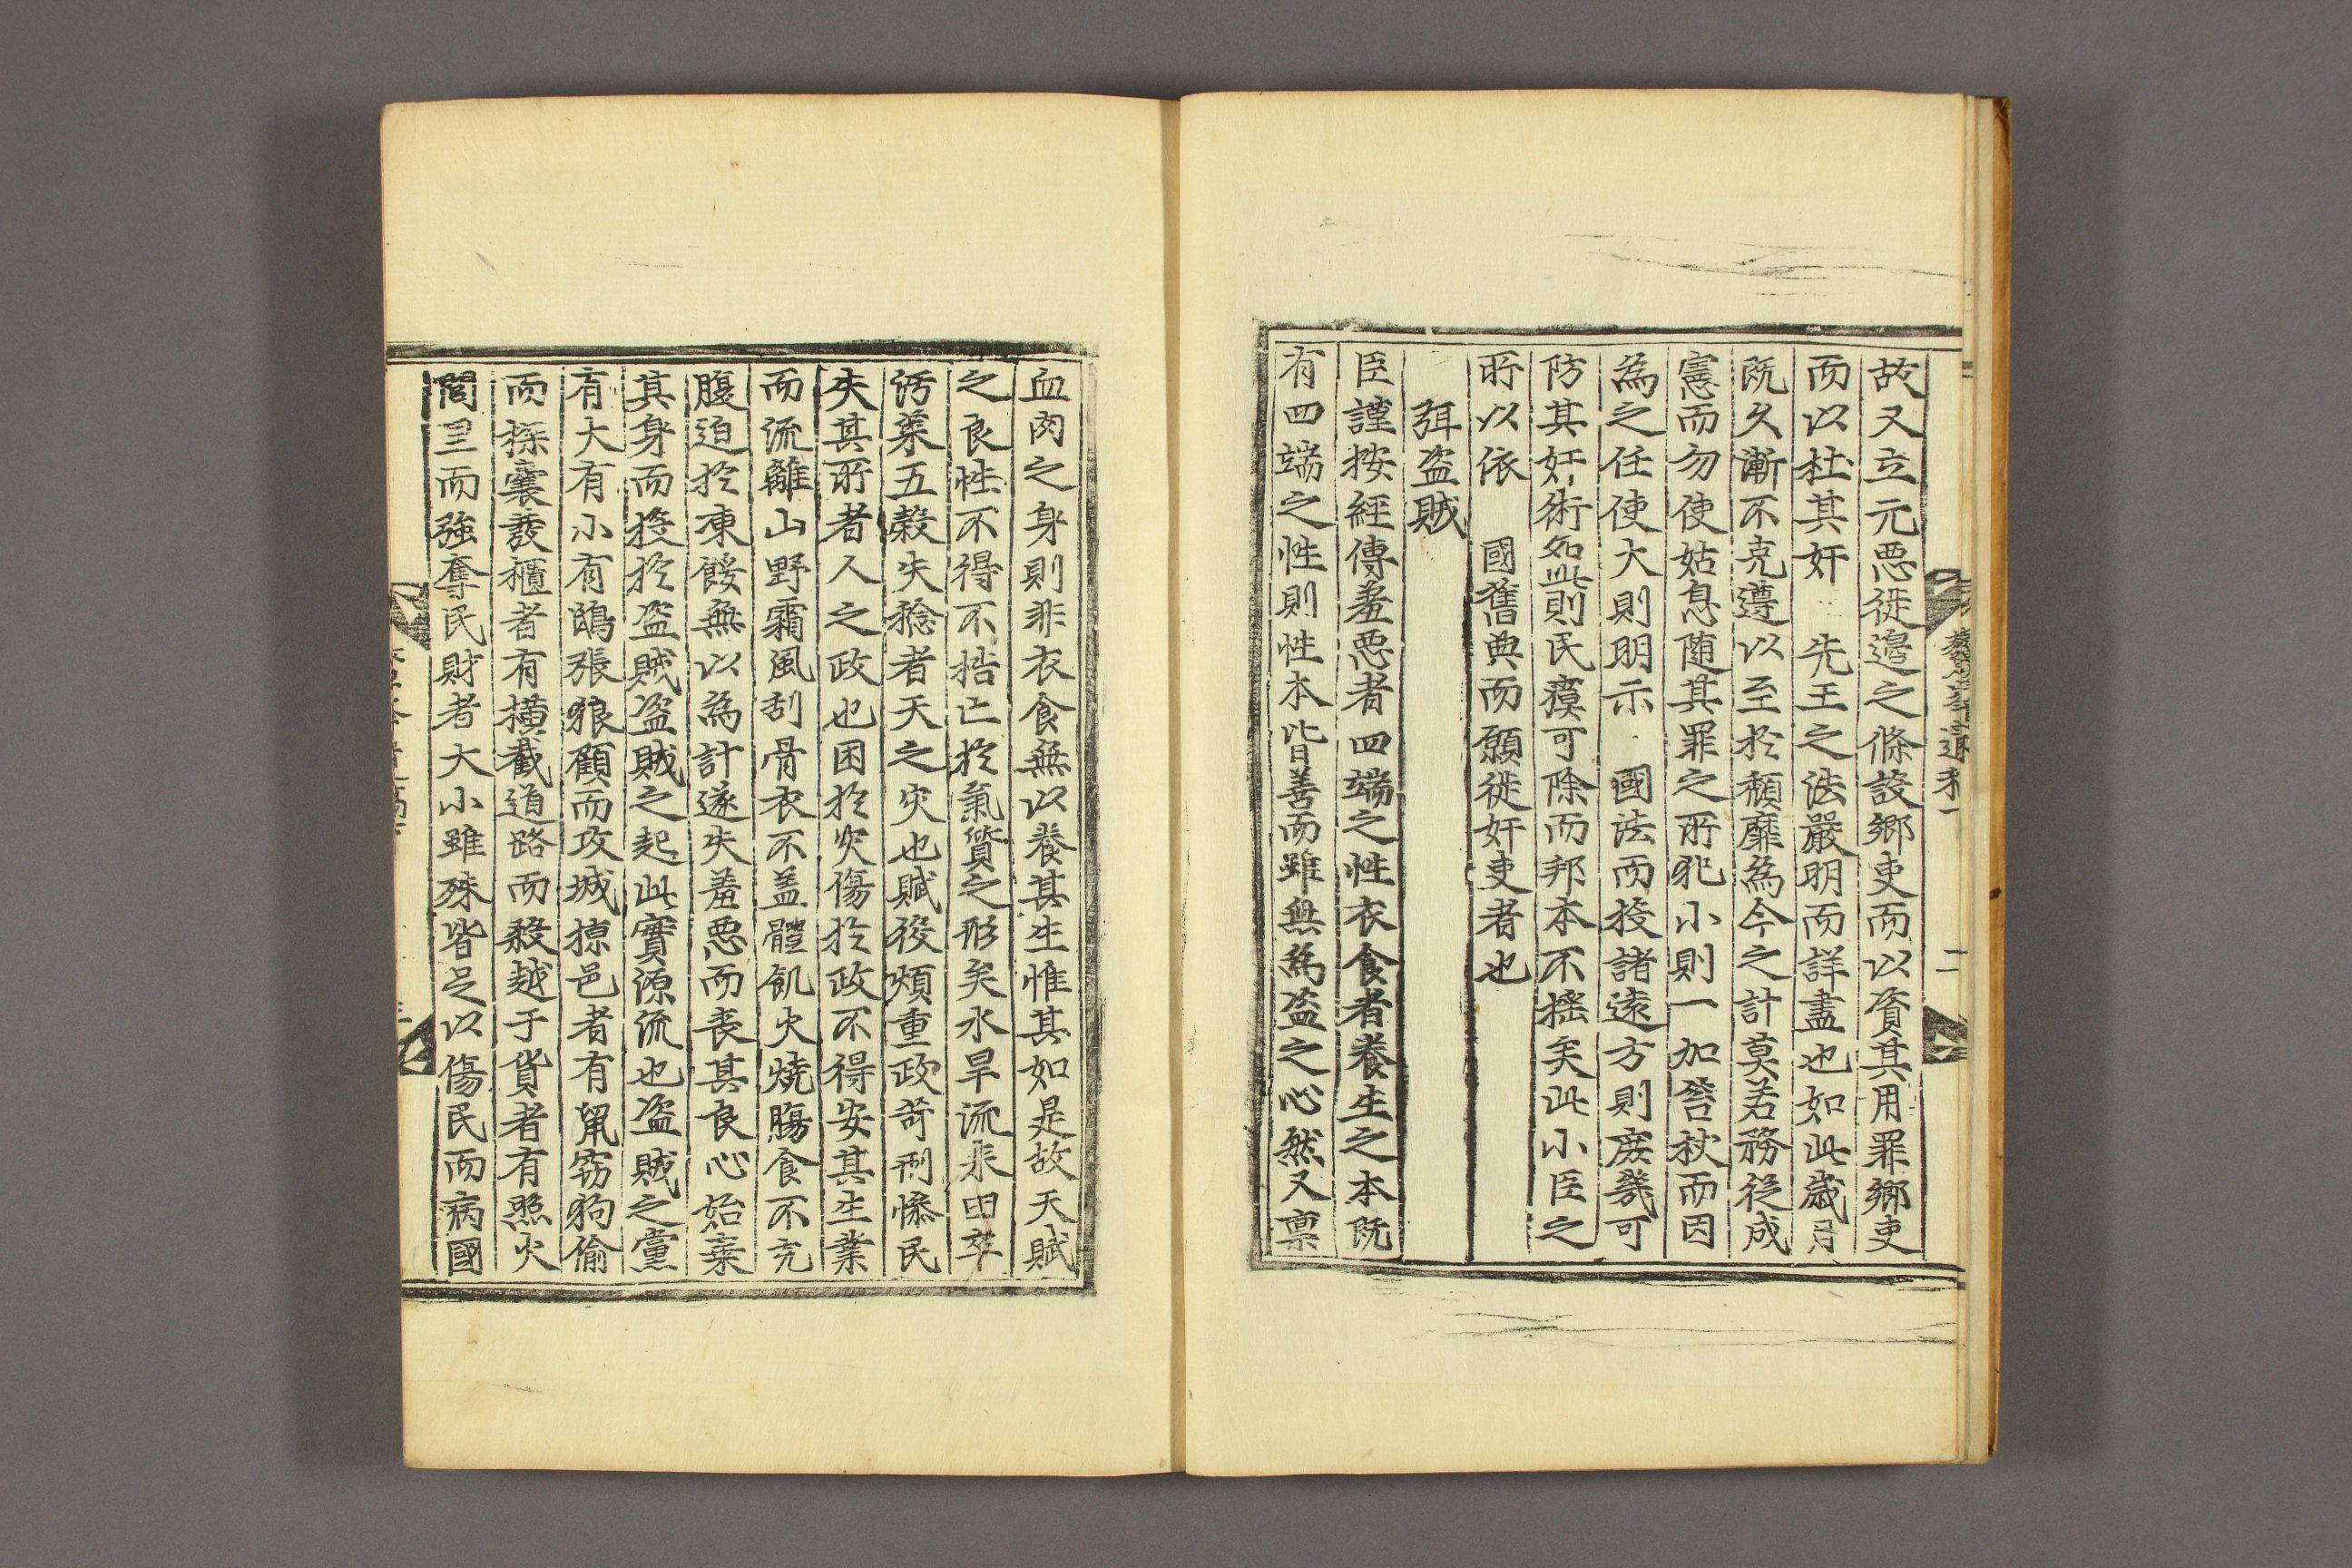 故又立元惡徙邊之條設鄕吏而以資其用罪鄕吏
而以杜其奸　先王之法嚴明而詳盡也如此歲月
旣久漸不克遵以至於頽靡爲今之計莫若務從成
憲而勿使姑息随其罪之所犯小則一加笞杖而因
爲之任使大則明示　國法而投諸遠方則庶幾可
防其奸術如此則民瘼可除而邦本不搖矣此小臣之
所以依　國舊典而願徙奸吏者也
弭盗賊
臣謹按經傳羞惡者四端之性衣食者養生之本旣
有四端之性則性本皆善而雖無爲盗之心然又禀
血肉之身則非衣食無以養其生惟其如是故天賦
之良性不得不梏亡於氣質之形矣水旱流來田卒
汚萊五穀失稔者天之灾也賦役煩重政苛刑慘民
失其所者人之政也困於灾傷於政不得安其生業
而流離山野霜風刮骨衣不盖體飢火燒膓食不充
腹迫於凍餒無以爲計遂失羞惡而喪其良心始棄
其身而投於盗賊盗賊之起此實源流也盗賊之黨
有大有小有鴟張狼顧而攻城掠邑者有鼠窃狗偷
而探囊發櫃者有横截道路而殺越于貨者有煦火
閭里而強奪民財者大小雖殊皆足以傷民而病國